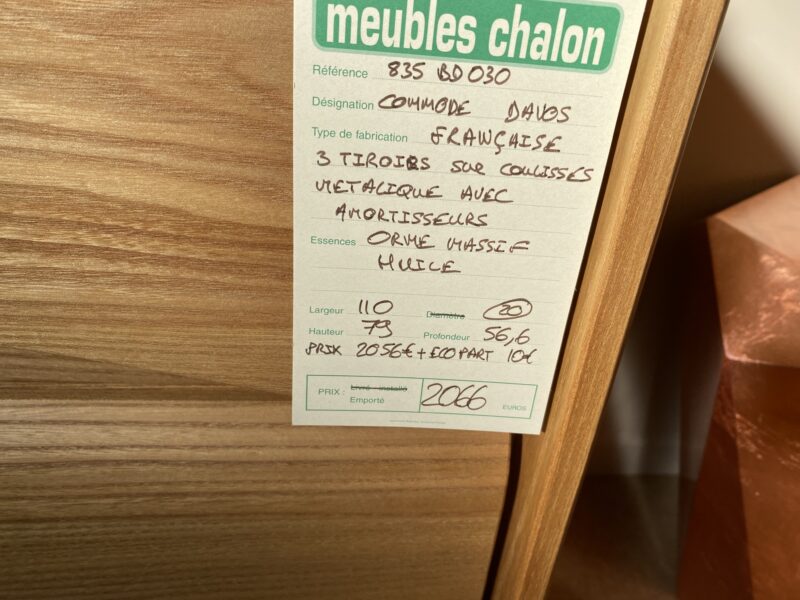 meubles chalon
Référence 835 BD030
Désignation COMMODE DAVOS
Type de fabrication FRANÇAISE
3 TIROIRS SUR COULISSES
METALIQUE AVEC
AMORTISSEURS
Essences ORME MASSIF
HUILE
Largeur 110 Diamètre 20
Hauteur 79 Profondeur 56,6
PRIX 2056€ + ECOPART 10€
PRIX : Livré - installé
Emporté 2066 EUROS